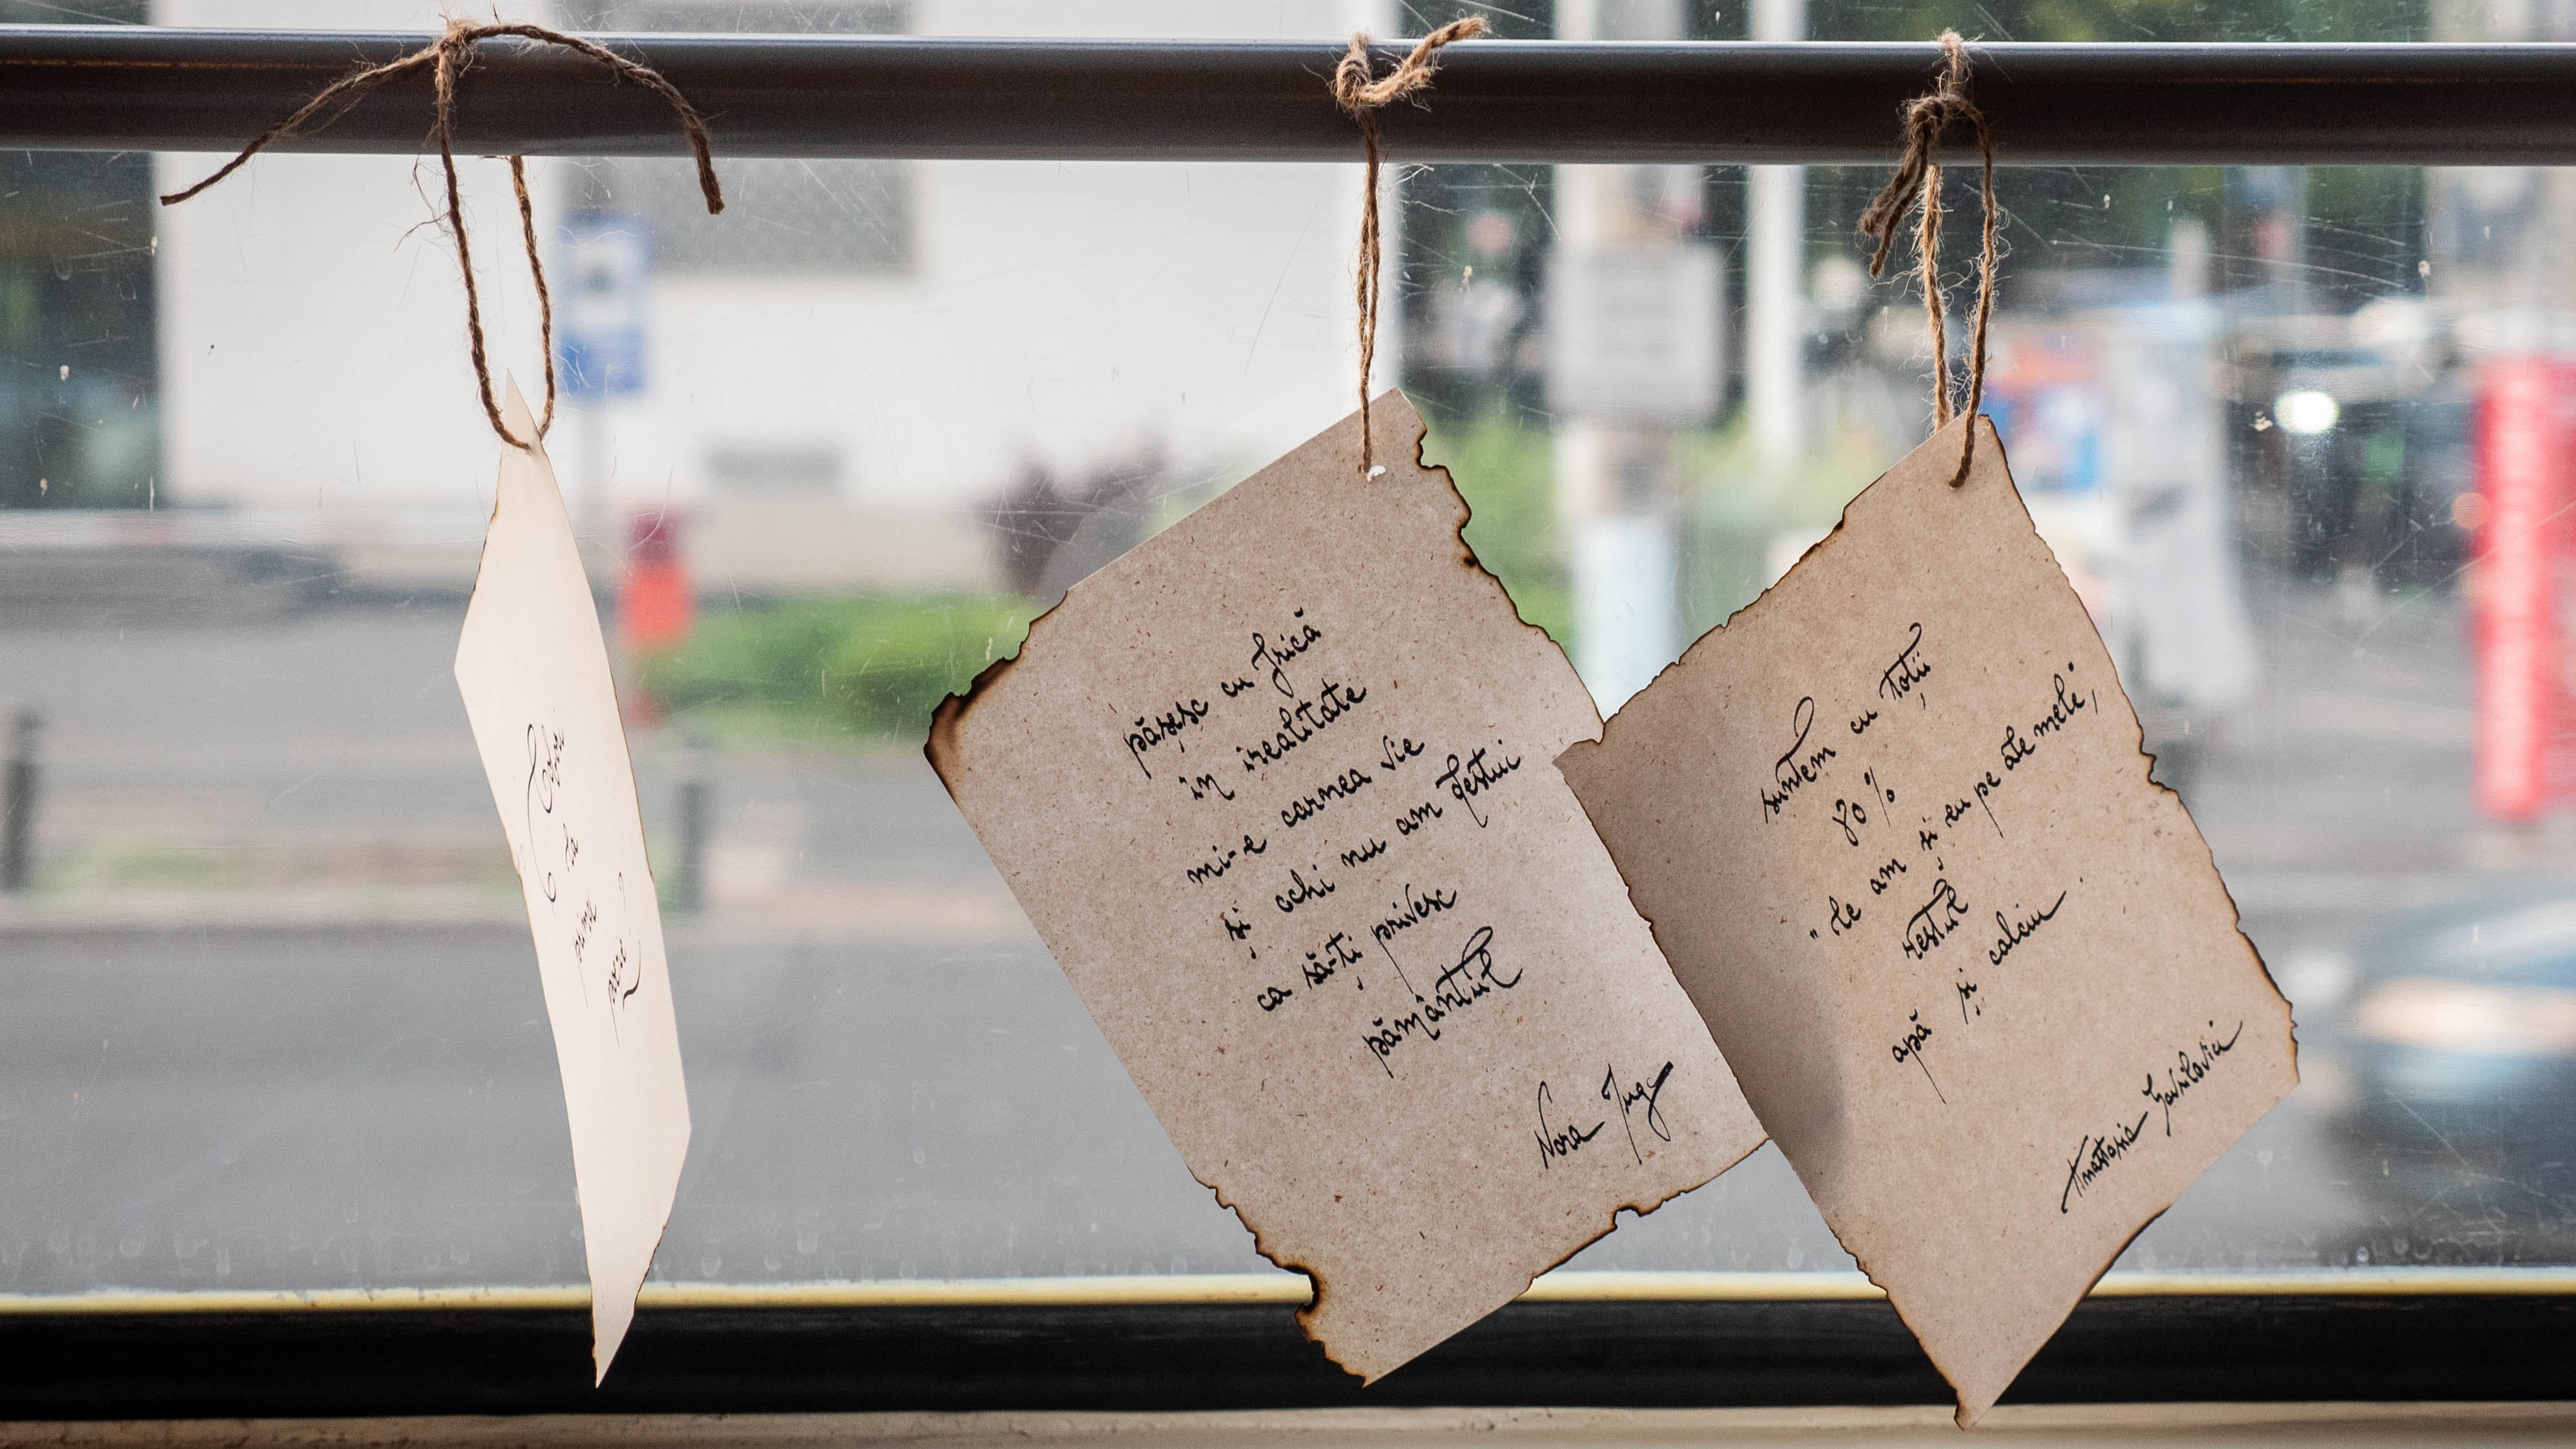 pășesc cu frică
în irealitate
mi-e carnea vie
și ochi nu am destui
ca să-ți privesc
pământul
Nora Iuga
suntem cu toții
80%
"le am și eu pe ale mele",
restul
apă și calciu.
Anastasia Gavrilovici